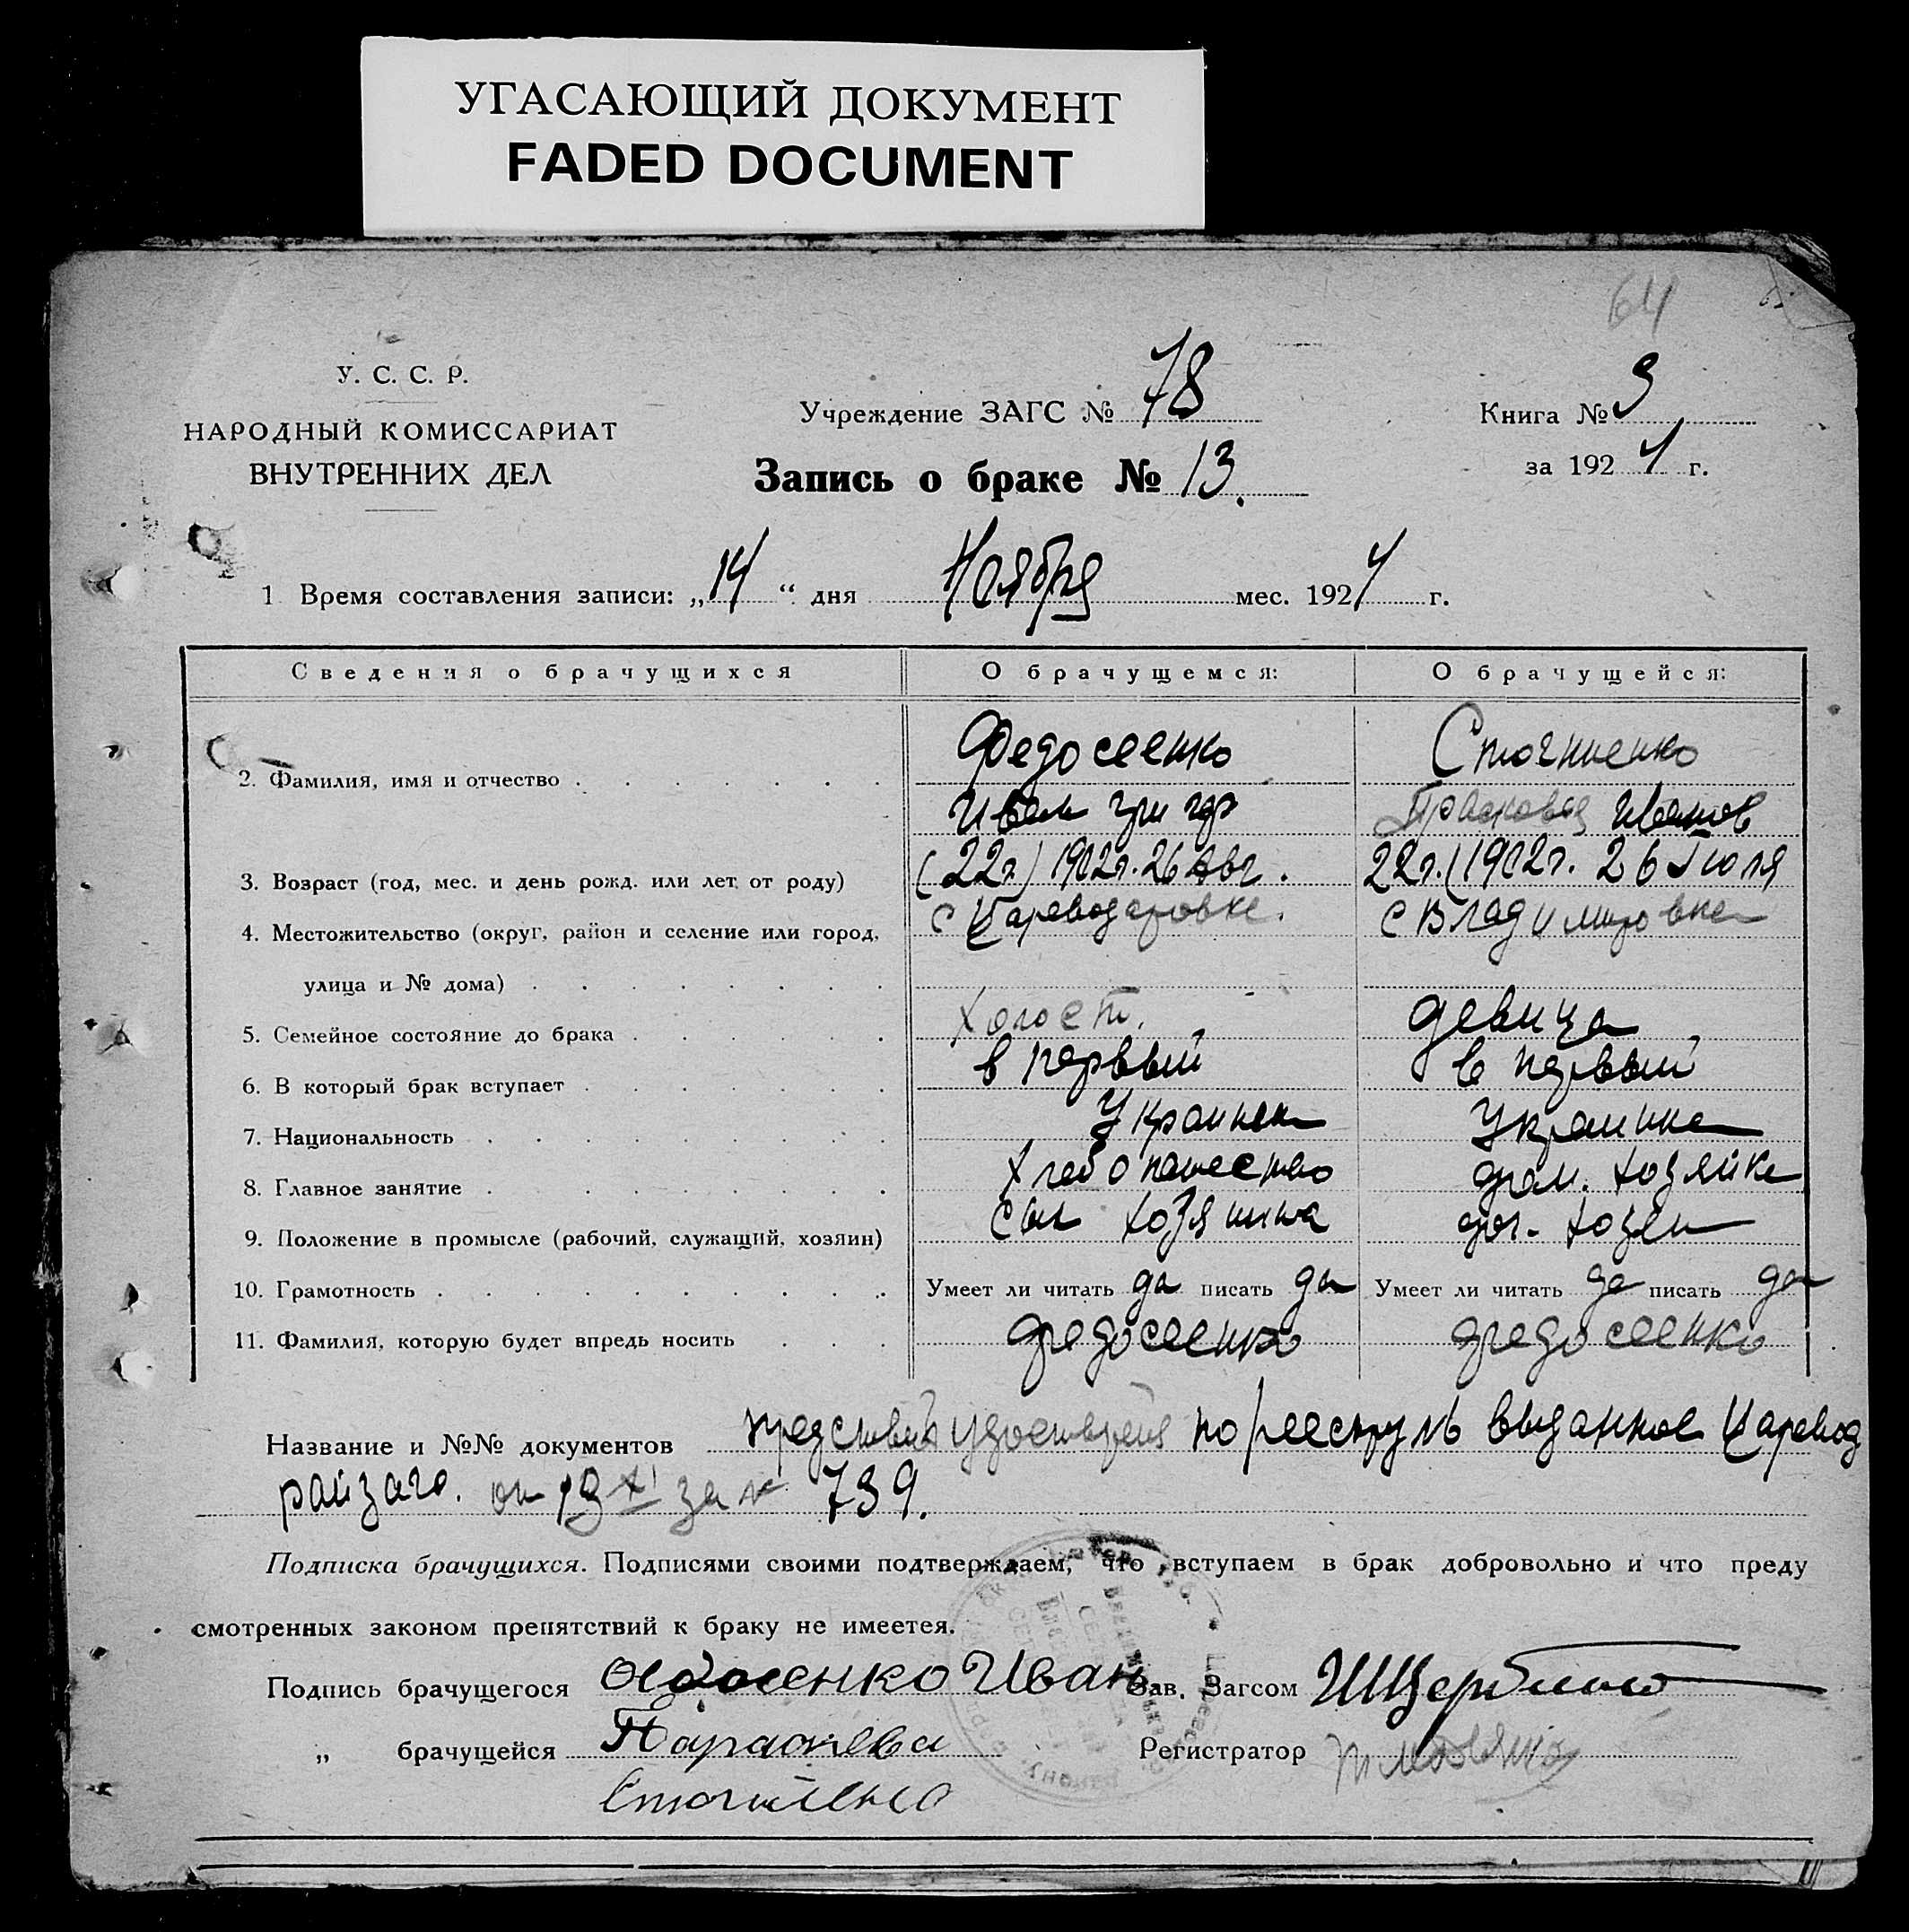 УГАСАЮЩИЙ ДОКУМЕНТ
FADED DOCUMENT
64
У. С. С. Р.
НАРОДНЫЙ КОМИССАРИАТ
ВНУТРЕННИХ ДЕЛ
Учреждение ЗАГС № 78
Книга № 3
Запись о браке № 13.
за 1924 г.
1 Время составления записи: „14“ дня Ноября мес. 1924 г.
Сведения о брачущихся О брачущемся: О брачущейся:
2. Фамилия, имя и отчество Федосеенко Стогниенко
Иван Григор Прасковья Иванов
3. Возраст (год, мес. и день рожд. или лет от роду) (22 г.) 1902 г. 26 Авг. 22 г. (1902 г. 26 Июля
4. Местожительство (округ, район и селение или город, с Цареводаровке. с Владимировке
улица и № дома)
5. Семейное состояние до брака холост. девица
6. В который брак вступает в первый в первый
7. Национальность Украинец Украинка
8. Главное занятие Хлебопашество дом. хозяйка
9. Положение в промысле (рабочий, служащий, хозяин) сын хозяина доч. хозяи
10. Грамотность Умеет ли читать да писать да Умеет ли читать да писать да
11. Фамилия, которую будет впредь носить Федосеенко Федосеенко
Название и №№ документов по реестру № выданное Царевод
райзагс. от за № 739.
Подписка брачущихся. Подписями своими подтверждаем, что вступаем в брак добровольно и что преду
смотренных законом препятствий к браку не имеется.
Подпись брачущегося Федосенко Иван Зав. Загсом
„ брачущейся Параскева Регистратор
Стогниенко